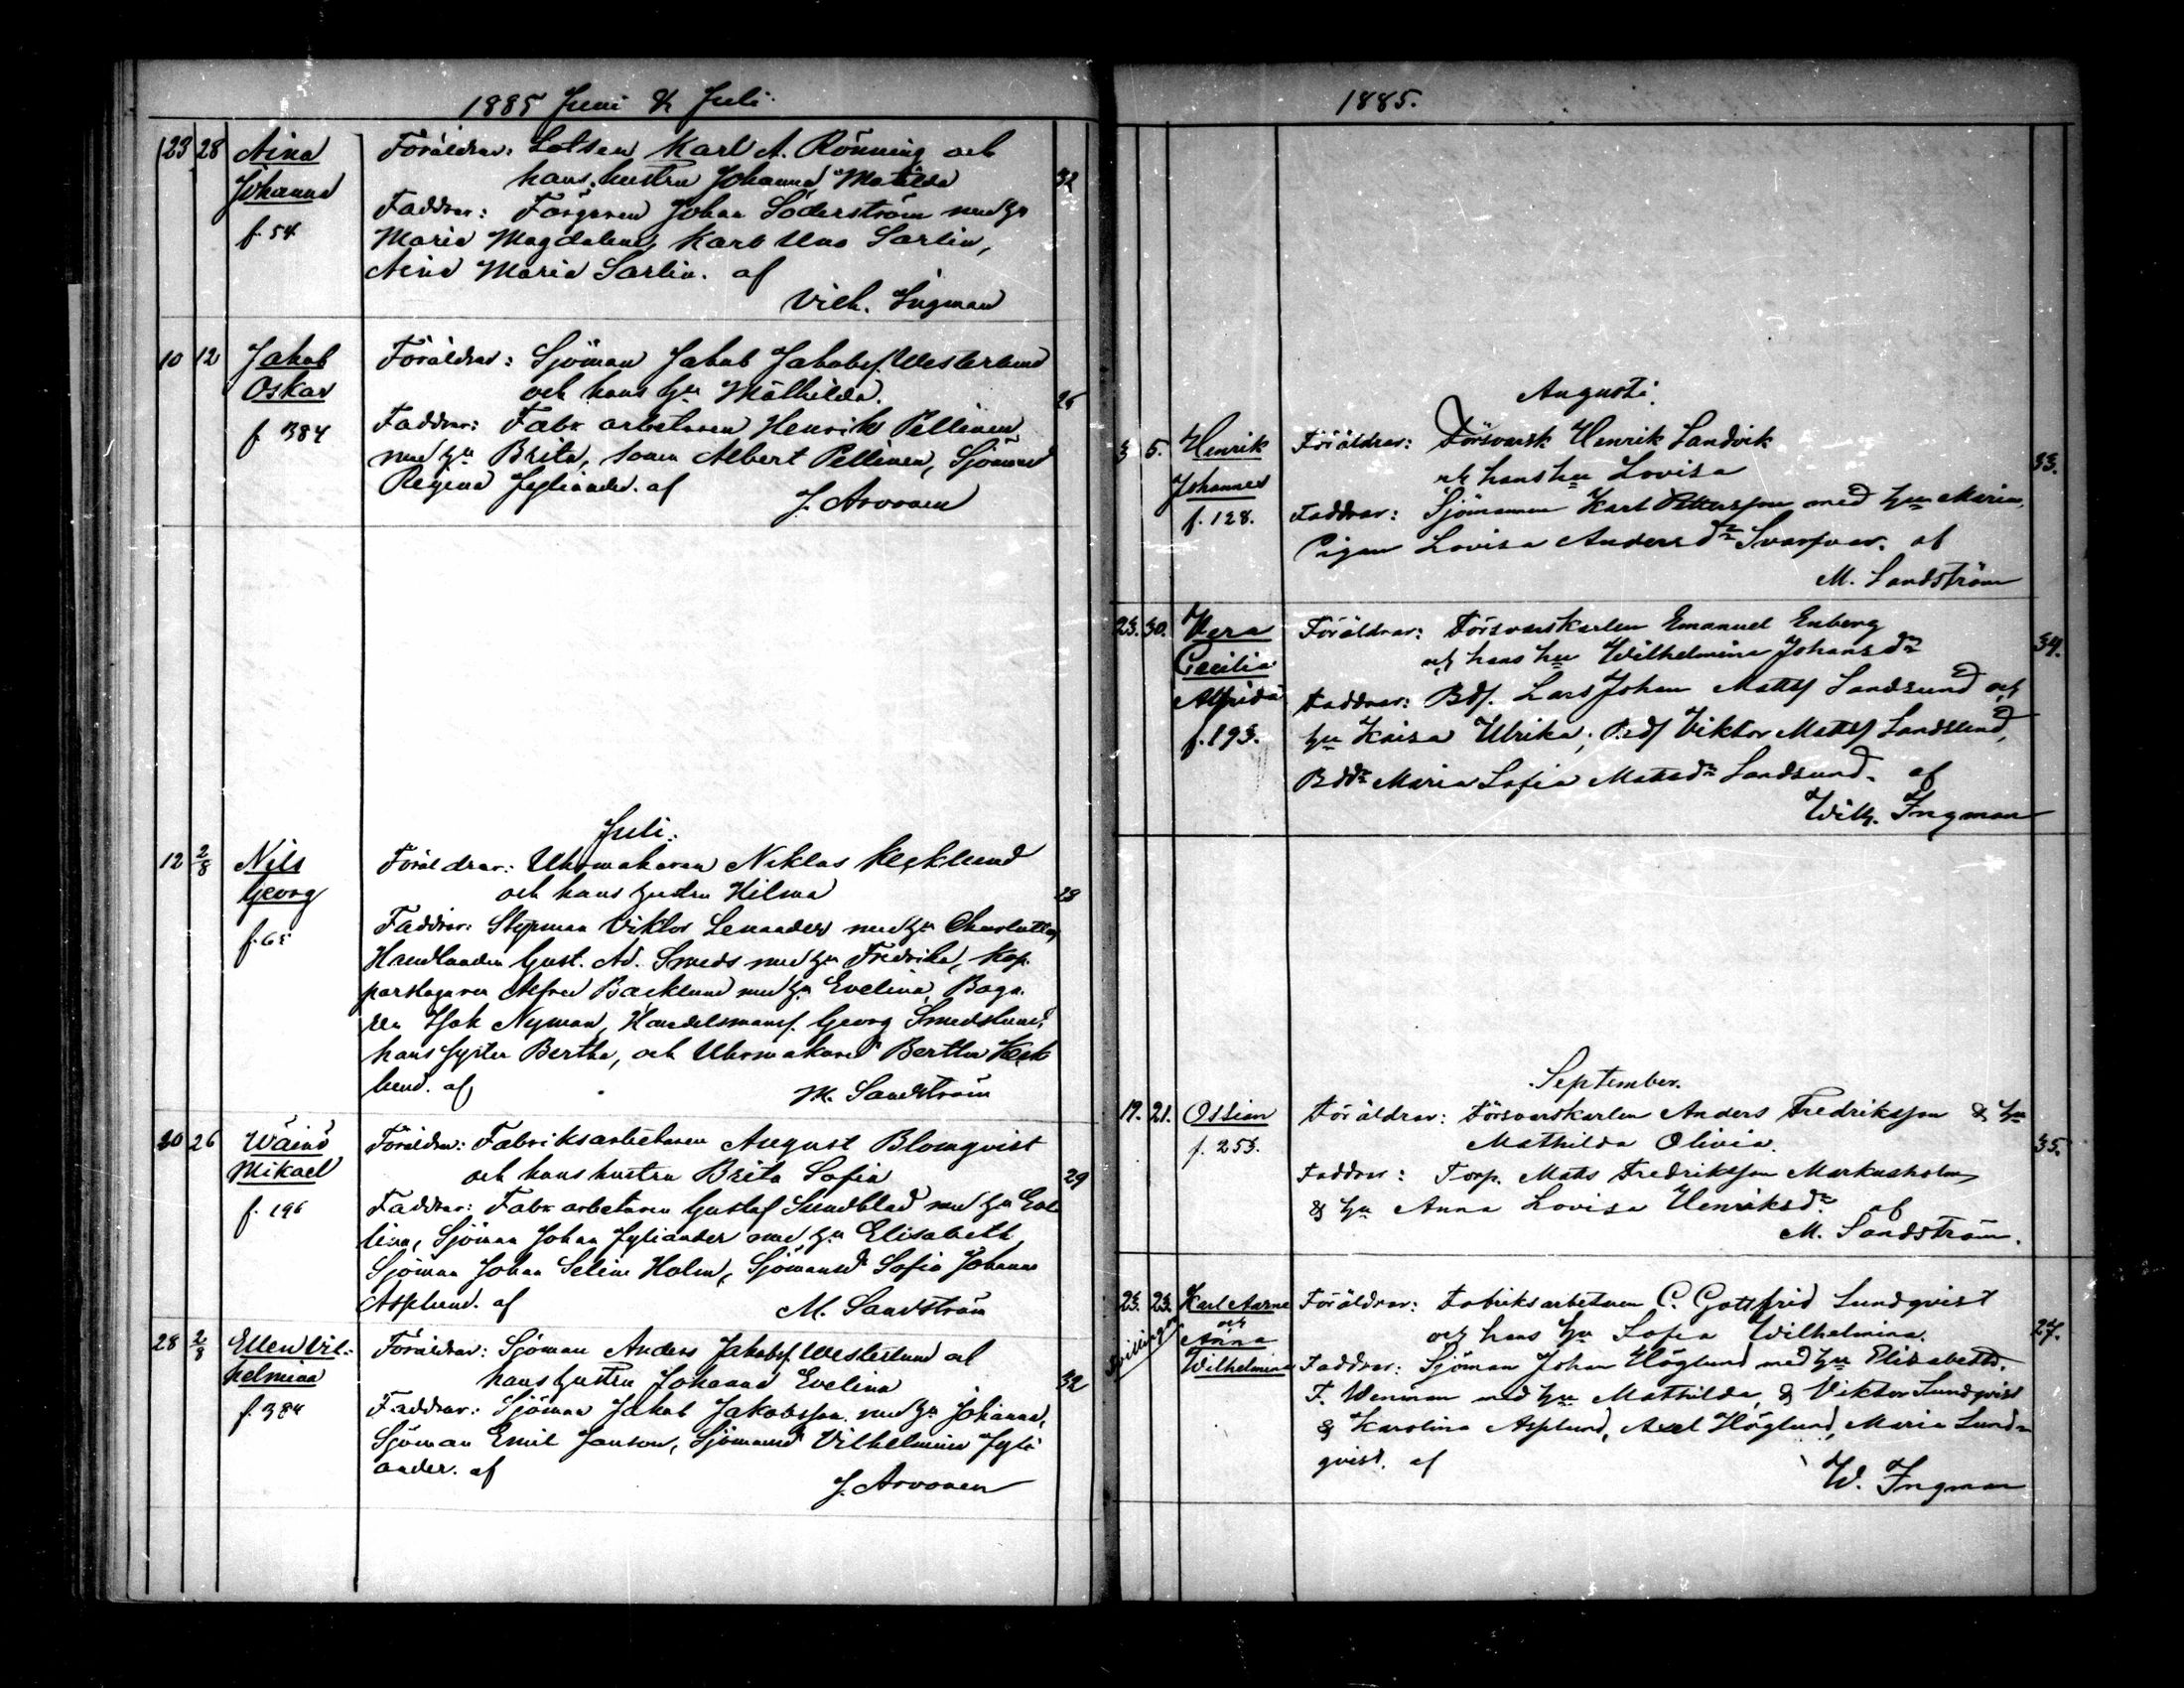 1885 Juni & Juli
23 28 Aina Föräldrar: Lotsen Karl A. Rönning och
Johanna hans hustru Johanna Matilda 32
f. 54 Faddrar: Färgaren Johan Söderström med hu
Maria Magdalena, Karl Uno Sarlin,
Aina Maria Sarlin. af
Vilh. Ingman
10 12 Jakob Föräldrar: Sjöman Jakob Jakobsf. Westerlund
Oskar och hans hu Mathilda.
f 384 Faddrar: Fabr arbetaren Henrik Pellinen
med hu Brita, sonen Albert Pellinen, Sjömansd
Regina Jyliander. af
J. Arvonen
Juli.
12 2/8 Nils Föräldrar: Uhrmakaren Niklas Kecklund
Georg och hans hustru Hilma 28
f. 65 Faddrar: Styrman Viktor Lenander med hu Charlotta,
Handlanden Gust. Ad. Smeds med hu Fredrika, Kop-
parslagaren Alfred Backlund med hu Evelina, Baga-
ren Isak Nyman, Handelsmansf. Georg Smedslund,
hans syster Bertha, och Uhrmakared Bertha Keck
lund. af M. Sandström
20 26 Wäinö Föräldrar: Fabriksarbetaren August Blomqvist
Mikael och hans hustru Brita Sofia 29
f. 196 Faddrar: Fabr arbetaren Gustaf Sundblad med hu Eve
lina, Sjöman Johan Jyliander med hu Elisabeth,
Sjöman Johan Selim Holm, Sjömansd Sofia Johanna
Asplund. af M. Sandström
28 2/8 Ellen Vil- Föräldrar: Sjöman Anders Jakobsf. Westerlund och
helmina hans hustru Johanna Evelina 32
f. 384 Faddrar: Sjöman Jakob Jakobsson med hu Johanna,
Sjöman Emil Janson, Sjömansd Vilhelmina Jyli
ander. af
J. Arvonen
1885.
Augusti.
3 5. Henrik Föräldrar: Försvarsk Henrik Sandvik
Johannes och hans hu Lovisa 33.
f. 128. Faddrar: Sjömannen Karl Pettersson med hu Maria,
Pigan Lovisa Andersdr Svarfvar. af
M. Sandström
23. 30. Vera Föräldrar: Försvarskarlen Emanuel Enberg
Cecilia och hans hu Wilhelmina Johansdr 34.
Alfrida Faddrar: Bdf. Lars Johan Mattsf Sandsund och
f. 193. hu Kaisa Ulrika, Bdf Viktor Mattsf Sandsund,
Bddr Maria Sofia Matsdr Sandsund. af
Wilh. Ingman
September.
19. 21. Ossian Föräldrar: Försvarskarlen Anders Fredriksson & hu
f. 253. Mathilda Olivia. 35.
Faddrar: Torp. Matts Fredriksson Markusholm
& hu Anna Lovisa Henriksdr af
M. Sandström.
23. 23. Karl Aarne Föräldrar: Fabriksarbetaren C. Gottfrid Lundqvist
Tvillingar och Anna och hans hu Sofia Wilhelmina. 27.
Wilhelmina Faddrar: Sjöman Johan Höglund med hu Elisabeth.
F. Wenman med hu Mathilda, & Viktor Lundqvist
& Karolina Asplund, Axel Höglund, Maria Lund-
qvist. af
W. Ingman